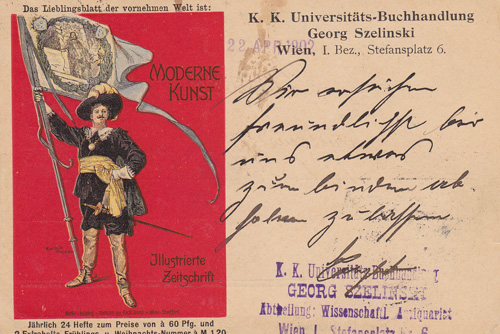 Das Lieblingsblatt der vornehmen Welt ist:
MODERNE
KUNST
Illustrierte
Zeitschrift
Jährlich 24 Hefte zum Preise von à 60 Pfg. und
2 Extrahefte Frühlings- u. Weihnachts-Nummer à M 1.20
K. K. Universitäts-Buchhandlung
Georg Szelinski
22 APR 1902
Wien, I. Bez., Stefansplatz 6.
Wir ersuchen
freundlichst bei
uns etwas
zum binden ab-
holen zu lassen
K. K. Universitäts-Buchhandlung
GEORG SZELINSKI
Abteilung: Wissenschaftl. Antiquariat
Wien I. Stefansplatz 6